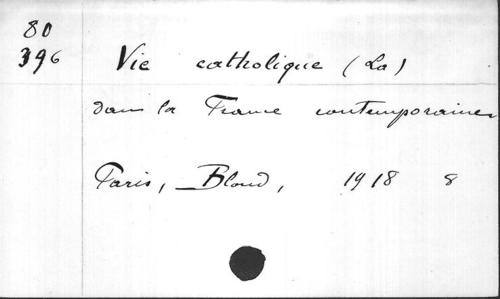 80
396
Vie catholique (La)
dans la France contemporaine
Paris, Bloud, 1918 8